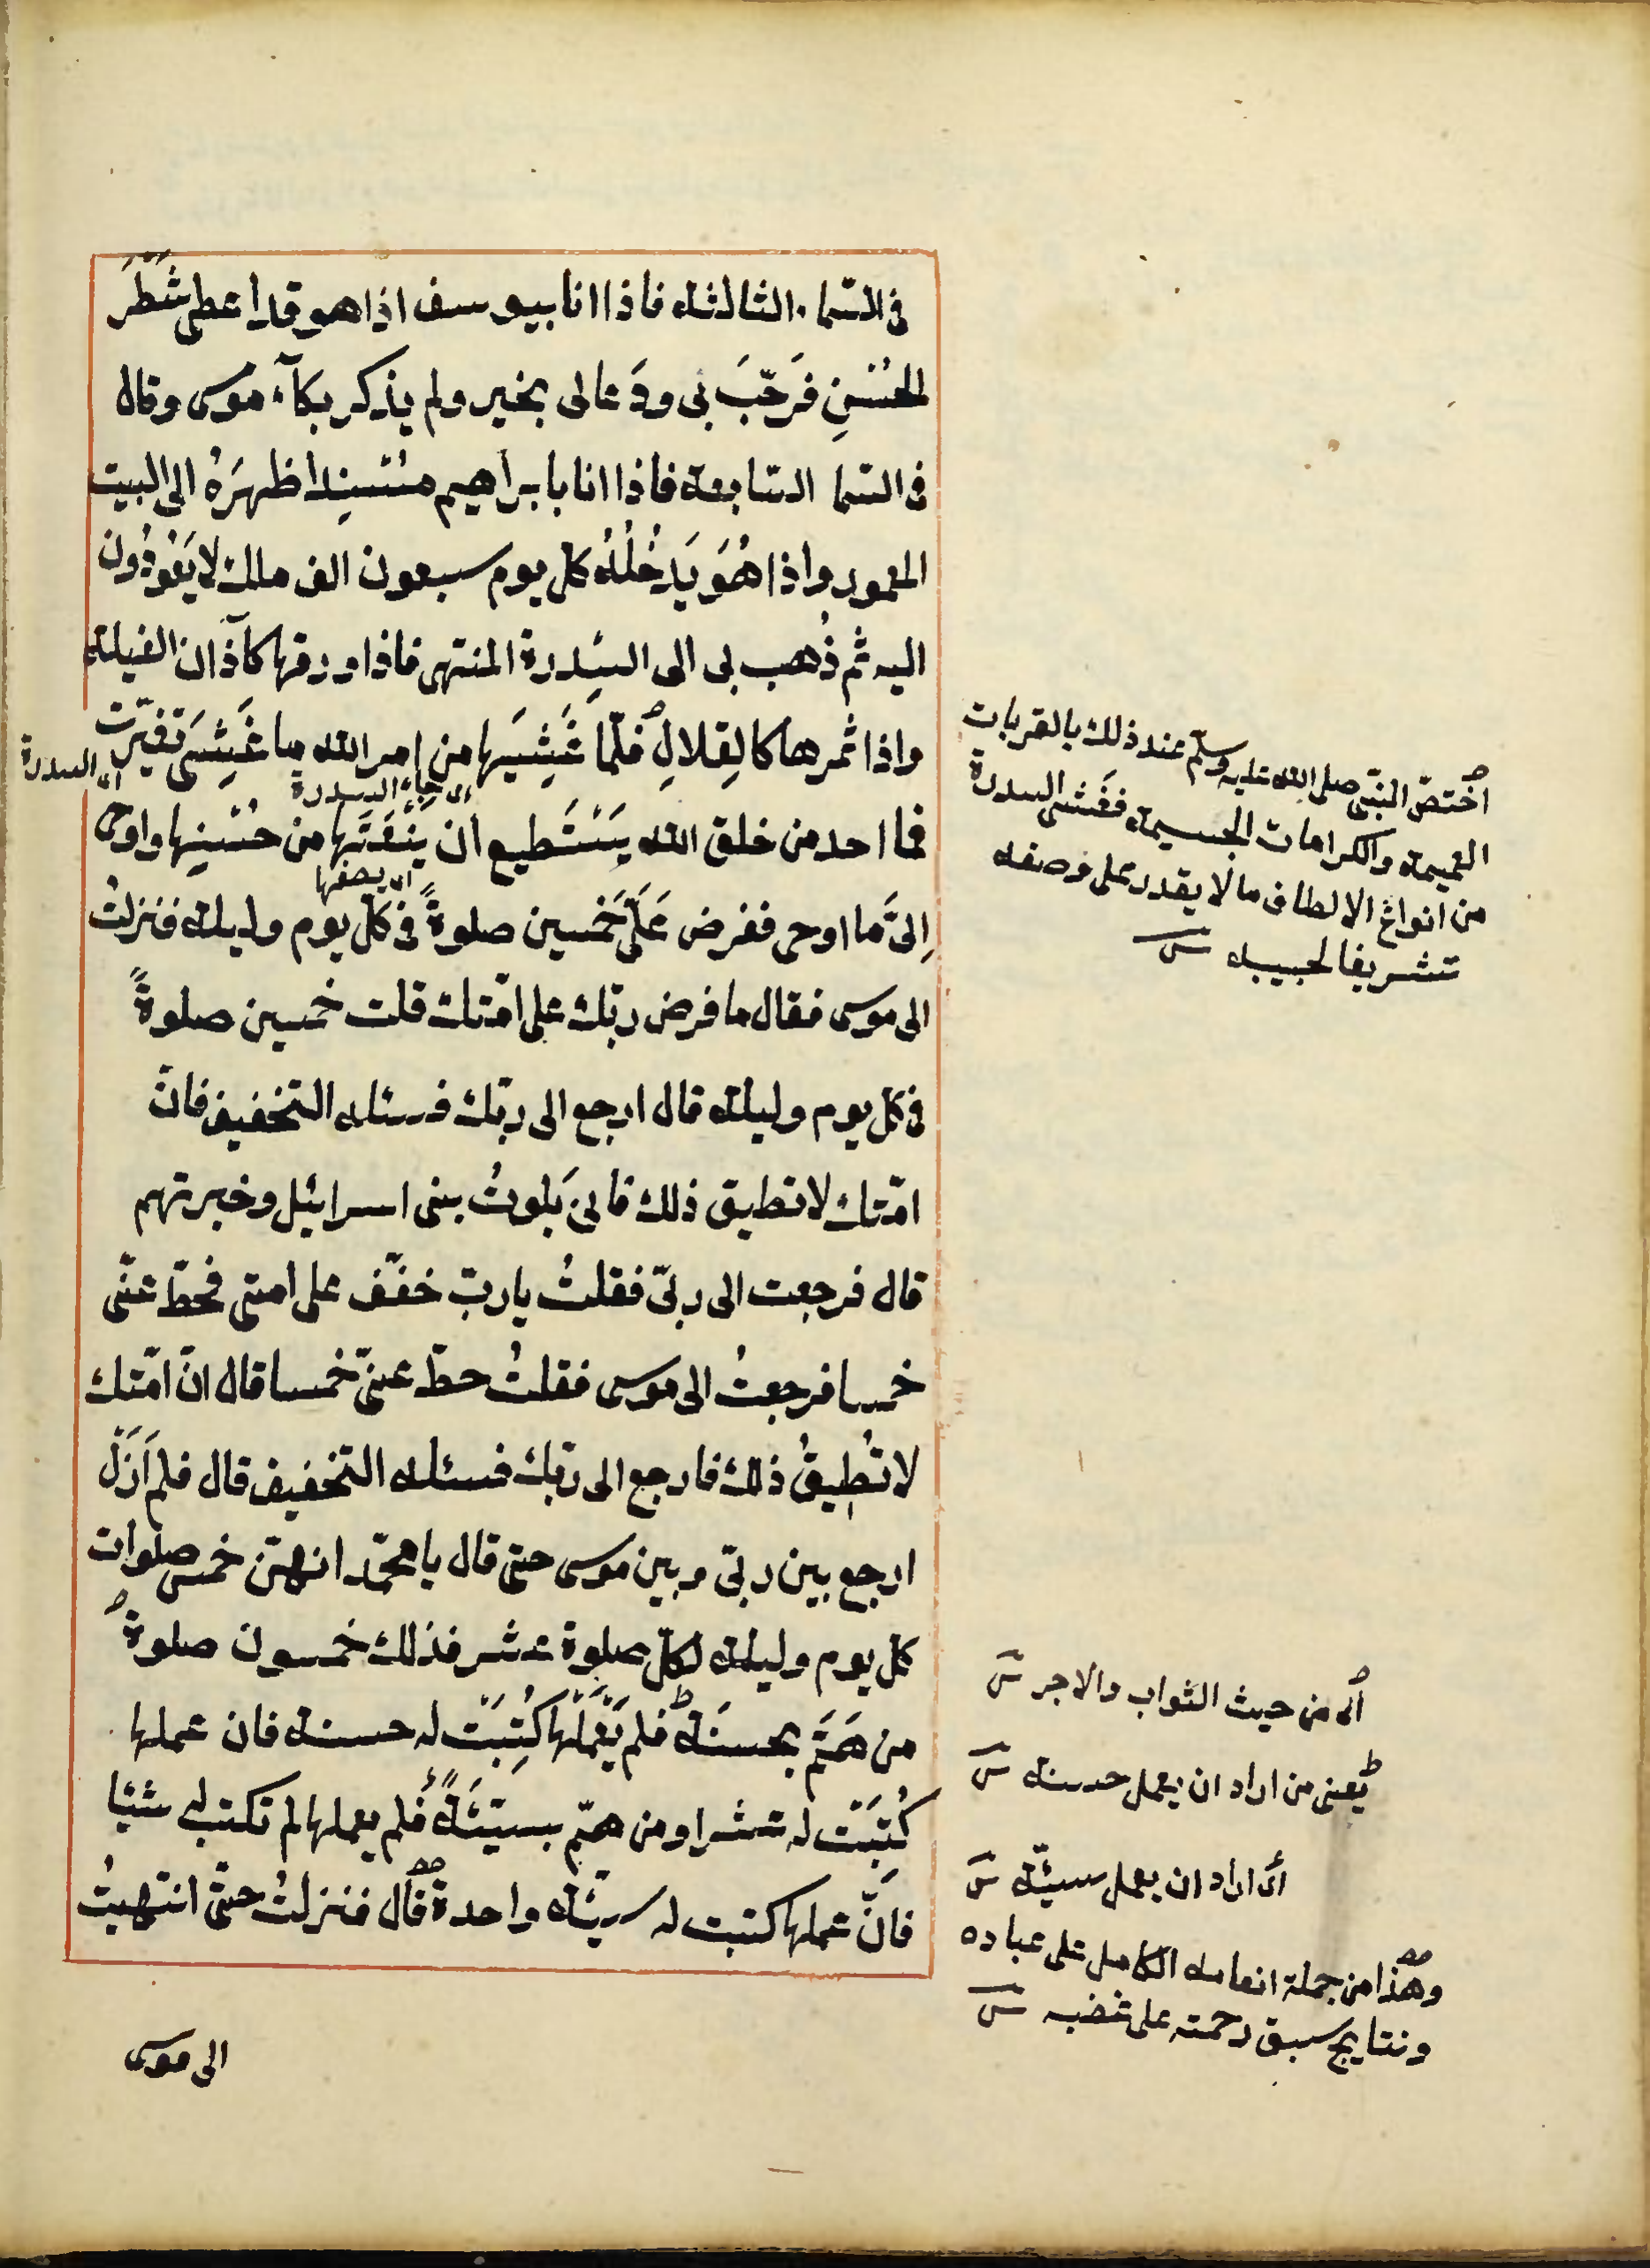 فى السّماء الثالثة فاذا انا بيوسف اذا هو قد اعطى شَطْرَ
الحُسْنِ فَرَحَّبَ بى ودَعا لى بخير ولم يذكر بكآء موسى وقال
فى السّما السّابعة فاذا انا بابراهيم مُسْنِدا ظهرَهُ الى البيت
المعمور واذا هُوَ يَدْخُلُهُ كلّ يوم سبعون الف ملك لا يَعُودُون
اليه ثم ذُهب بى الى السِدرة المنتهى فاذا ورقها كآذان الفيلة
واذا ثمرها كالقِلالِ فلمّا غَشِيَها من امر الله ما غَشِىَ تغيّرت
اى السدرة
فما احد من خلق الله يَسْتَطيع ان يَنْعَتَها من حُسْنِها واوحى
اى يصفها
اِلىَّ ما اوحى ففرض عَلَىَّ خَمسين صلوةً فى كلّ يوم وليلة فنزلتُ
الى موسى فقال ما فرض ربّك على امّتك قلت خمسين صلوةً
فى كلّ يوم وليلة قال ارجع الى ربّك فسئله التخفيف فانّ
امّتك لا تطيق ذلك فانى بَلوتُ بنى اسرائيل وخبرتهم
قال فرجعت الى ربّى فقلتُ يا ربّ خفّف على امتى فحطّ عنّى
خمسا فرجعتُ الى موسى فقلتُ حطّ عنىّ خمسا قال انّ امّتك
لا تُطِيقُ ذلك فارجع الى ربّك فسئله التخفيف قال فلم اَزَلْ
ارجع بين ربّى وبين موسى حتى قال يا محمّد انهنّ خمس صلوات
كل يوم وليلة لكلّ صلوة عشر فذلك خمسون صلوةً
من هَمَّ بحسنَةٍ فلم يَعْمَلْها كُتِبَتْ له حسنة فان عملها
كُتِبَتْ له عشرا ومن همّ بسيّئَةً فلم يعملها لم تكتب له شيئا
فانّ عملها كتبت له سيّئة واحدة قال فنزلتُ حتّى انتهيتُ
الى موسى
اختصّ النبىّ صلى الله عليه وسلّم عند ذلك بالقربات
العميمة والكرامات الجسيمة فغشى السدرة
من انواع الالطاف ما لا يقدر على وصفه
تشريفا لحبيبه
اى من حيث الثواب والاجر
يعنى من اراد ان يعمل حسنة
اى اراد ان يعمل سيئّة
وهذا من جملة انعامه الكامل على عباده
ونتايج سبق رحمته على غضبه